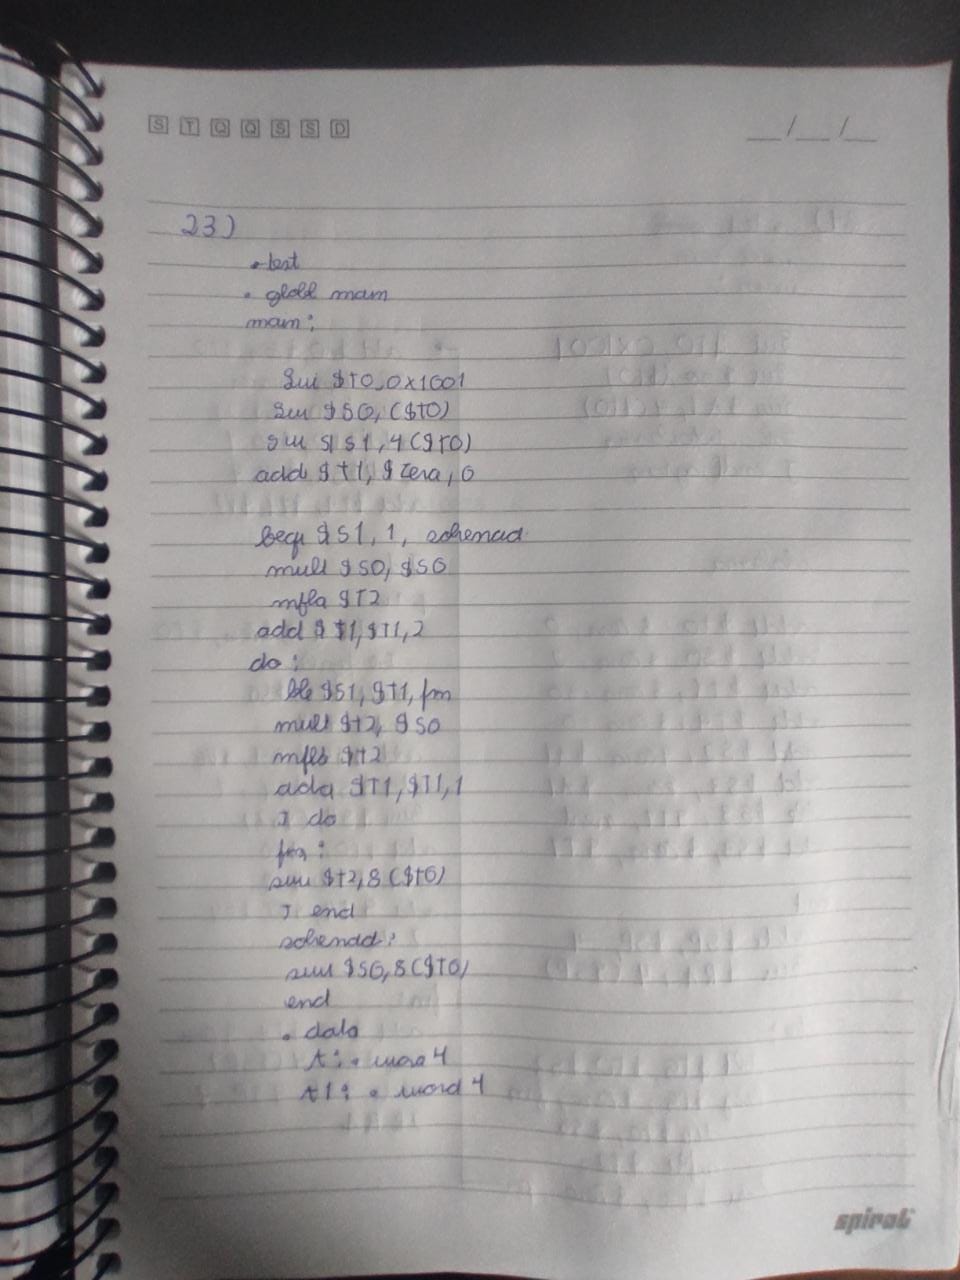 S T Q Q S S D
__/__/__
23)
. text
. globl main
main:
lui $t0, 0x1001
lw $s0, ($t0)
lw $s1, 4($t0)
add $t1, $zero, 0
beq $s1, 1,
mult $s0, $s0
mflo $t2
add $t1, $t1, 2
do:
ble $s1, $t1, fim
mult $t2, $s0
mflo $t2
add $t1, $t1, 1
j do
fim:
sw $t2, 8($t0)
j end
sw $s0, 8($t0)
end
. data
t: . word 4
t1: . word 4
spiral